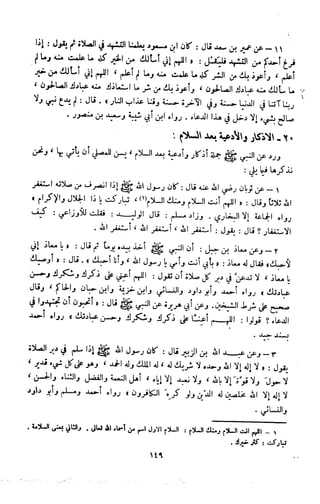 ١١ - عن عمير بن سعد قال : كان ابن مسعود يعلمنا التشهد في الصلاة ثم يقول : إذا
فرغ أحدكم من التشهد فليقل : « اللهم إني أسألك من الخير كله ما علمت منه وما لم
أعلم ، وأعوذ بك من الشر كله ما علمت منه وما لم أعلم ، اللهم إني أسألك من خير
ما سألك منه عبادك الصالحون ، وأعوذ بك من شر ما استعاذك منه عبادك الصالحون ،
ربنا آتنا في الدنيا حسنة وفي الآخرة حسنة وقنا عذاب النار » . قال : لم يدع نبي ولا
صالح بشيء إلا دخل في هذا الدعاء . رواه ابن أبي شيبة وسعيد بن منصور .
٢٠ - الاذكار والأدعية بعد السلام :
ورد عن النبي ﷺ جملة أذكار وأدعية بعد السلام ، يسن للمصلي أن يأتي بها ، ونحن
نذكرها فيما يلي :
١ - عن ثوبان رضي الله عنه قال : كان رسول الله ﷺ إذا انصرف من صلاته استغفر
الله ثلاثا وقال : « اللهم أنت السلام ومنك السلام (١) ، تباركت يا ذا الجلال والإكرام »
رواه الجماعة إلا البخاري . وزاد مسلم : قال الوليد : فقلت للأوزاعي : كيف
الاستغفار ؟ قال : يقول : أستغفر الله ، أستغفر الله ، أستغفر الله .
٢ - وعن معاذ بن جبل : أن النبي ﷺ أخذ بيده يوما ثم قال : « يا معاذ إني
لأحبك » فقال له معاذ : « بأبي أنت وأمي يا رسول الله ، وأنا أحبك » . قال : « أوصيك
يا معاذ ، لا تدعن في دبر كل صلاة أن تقول : اللهم أعني على ذكرك وشكرك وحسن
عبادتك » رواه أحمد وأبو داود والنسائي وابن خزيمة وابن حبان والحاكم ، وقال
صحيح على شرط الشيخين. وعن أبي هريرة عن النبي ﷺ قال : « أتحبون أن تجتهدوا في
الدعاء ؟ قولوا : اللهم أعنا على ذكرك وشكرك وحسن عبادتك » رواه أحمد
بسند جيد .
٣ - وعن عبد الله بن الزبير قال : كان رسول الله ﷺ إذا سلم في دبر الصلاة
يقول : « لا إله إلا الله وحده لا شريك له ، له الملك وله الحمد ، وهو على كل شيء قدير ،
لا حول ولا قوة إلا بالله ، ولا نعبد إلا إياه ، أهل النعمة والفضل والثناء والحسن ،
لا إله إلا الله مخلصين له الدين ولو كره الكافرون » رواه أحمد ومسلم وأبو داود
والنسائي .
١ - اللهم انت السلام ومنك السلام : السلام الاول اسم من أسماء الله تعالى . والثاني بمعنى السلامة .
تباركت : كثر خيرك .
١٤٩